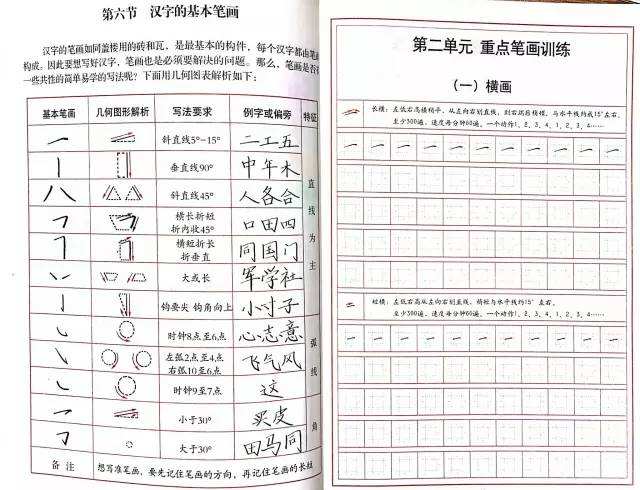 第六节 汉字的基本笔画
汉字的笔画如同盖楼用的砖和瓦，是最基本的构件，每个汉字都由笔画
构成。因此要想写好汉字，笔画也是必须要解决的问题。那么，笔画是否有
一些共性的简单易学的写法呢？下面用几何图表解析如下：
基本笔画 几何图形解析 写法要求 例字或偏旁 特征
斜直线5°-15° 二工五
垂直线90° 中午木
斜直线45° 人各合
横长折短
折内收45° 口田四
横短折长
折垂直 同国门
大或长 军学社
钩要尖 钩角向上 小寸子
直线为主
时钟8点至6点 心志意
左弧2点至4点
右弧10至6点 飞气风
时钟9至7点 这
弧线
小于30° 买皮
大于30° 田马同
角
备注 想写准笔画，要先记住笔画的方向，再记住笔画的长短
第二单元 重点笔画训练
（一）横画
长横：左低右高横稍平，从左向右划直线，到右端后稍顿，与水平线约成15°左右，
至少300遍，速度每分钟60遍，一个动作1、2、3、4，1、2、3、4……
短横：左低右高从左向右划直线，稍短与水平线约15°左右，
至少300遍，速度每分钟60遍，一个动作1、2、3、4，1、2、3、4……